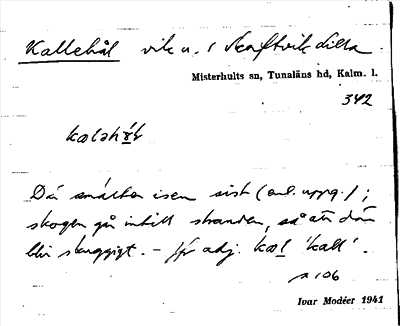 Kallehål vik u. i Skaftvik Lilla.
Misterhults sn, Tunaläns hd, Kalm. l.
342
Då smälter isen sist (enl. uppg.);
skogen går intill stranden, så att där
blir skuggigt. – Jfr adj. kall 'kall'.
s 106
Ivar Modéer 1941